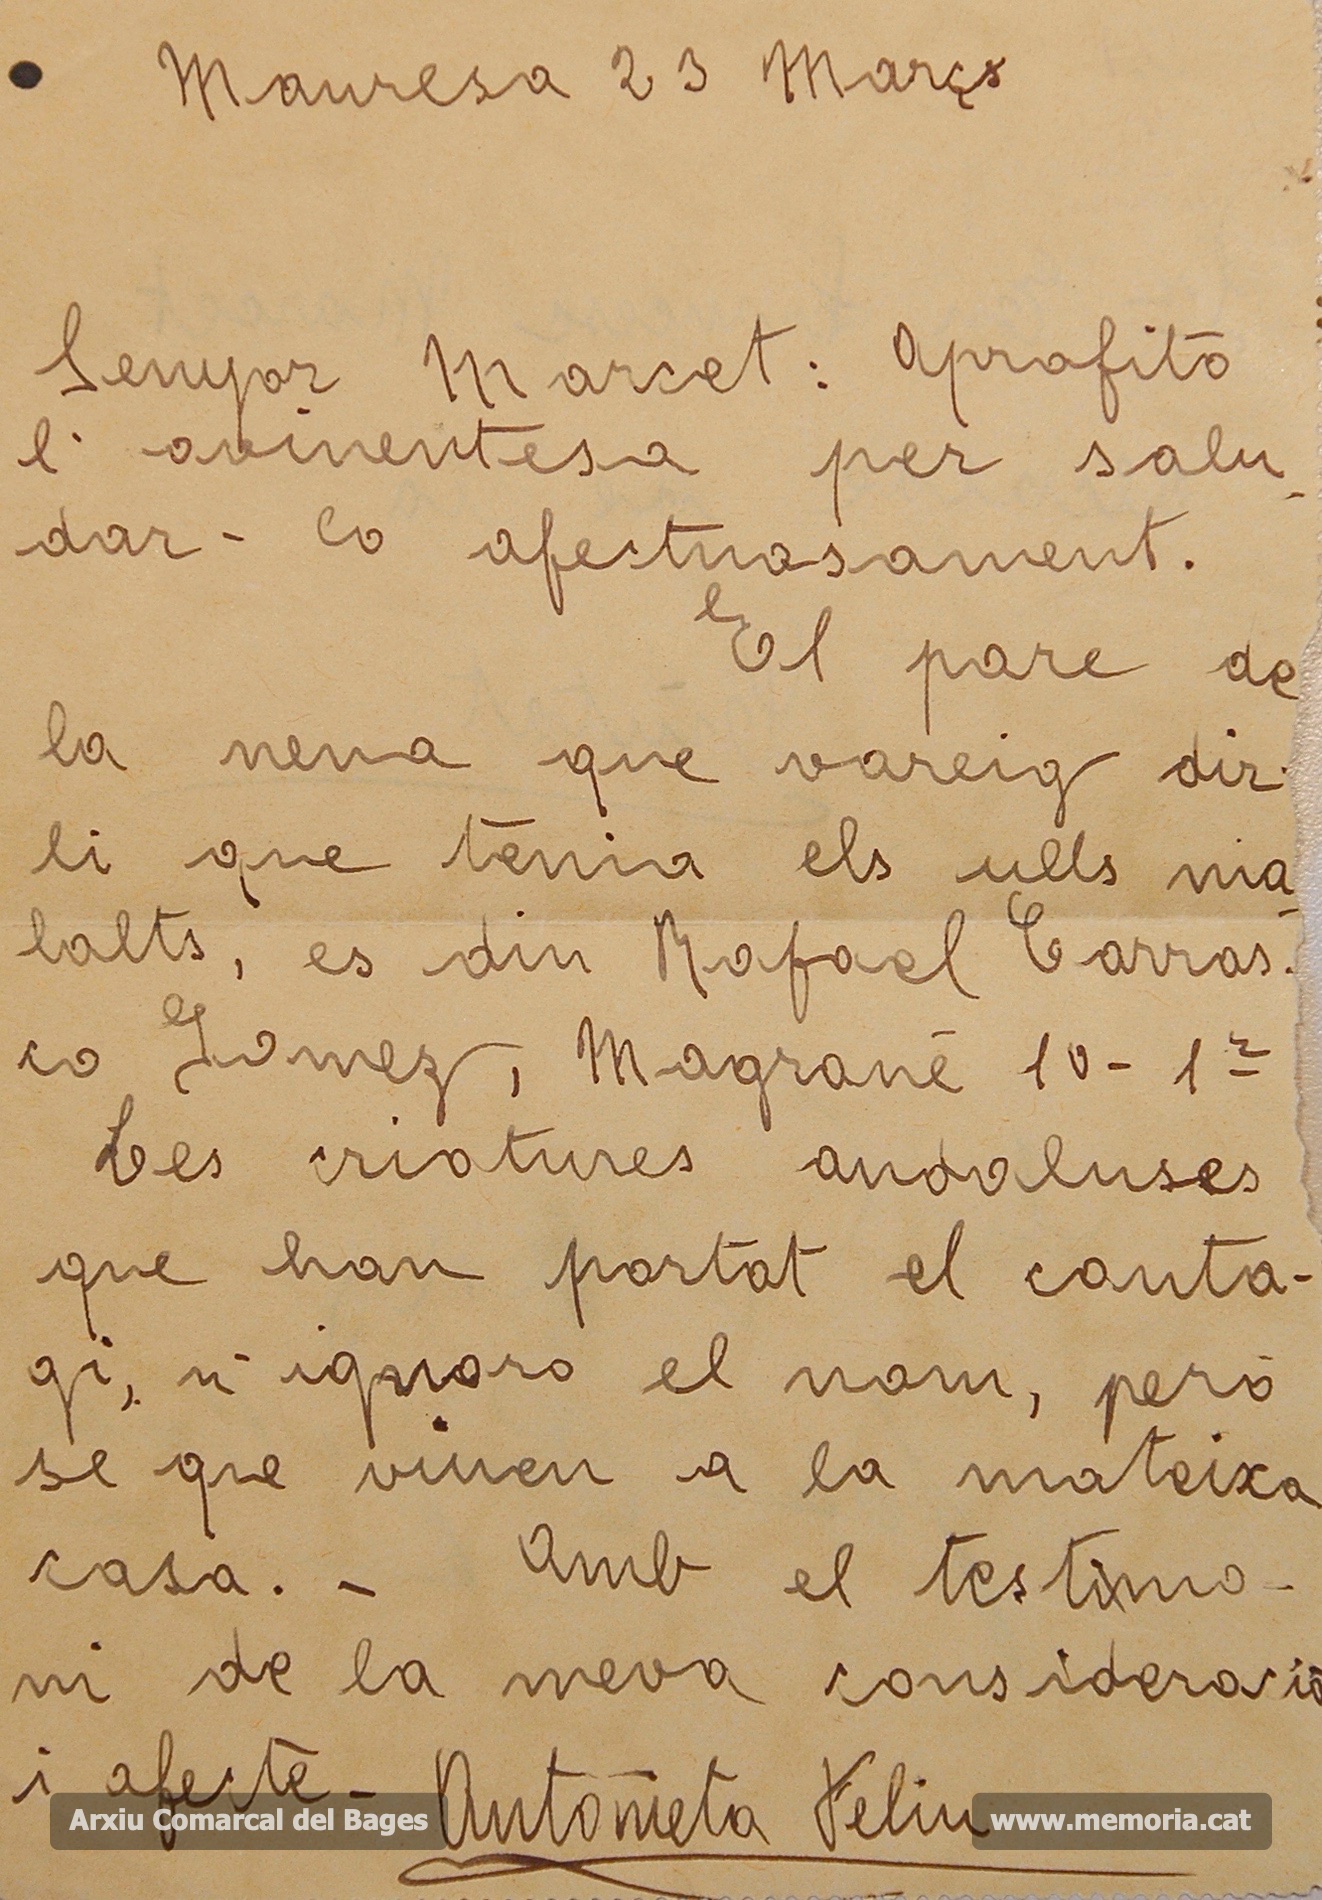 Manresa 23 Març
Senyor Marcet: Aprofito
l'avinentesa per salu-
dar-lo afectuosament.
El pare de
la nena que vareig dir-
li que tenia els ulls ma-
lalts, es diu Rafael Carras-
co Gomez, Magrané 10-1r
Les criatures andaluses
que han portat el conta-
gi, n'ignoro el nom, però
se que viuen a la mateixa
casa. - Amb el testimo-
ni de la meva consideració
i afecte - Antonieta Feliu
Arxiu Comarcal del Bages
www.memoria.cat